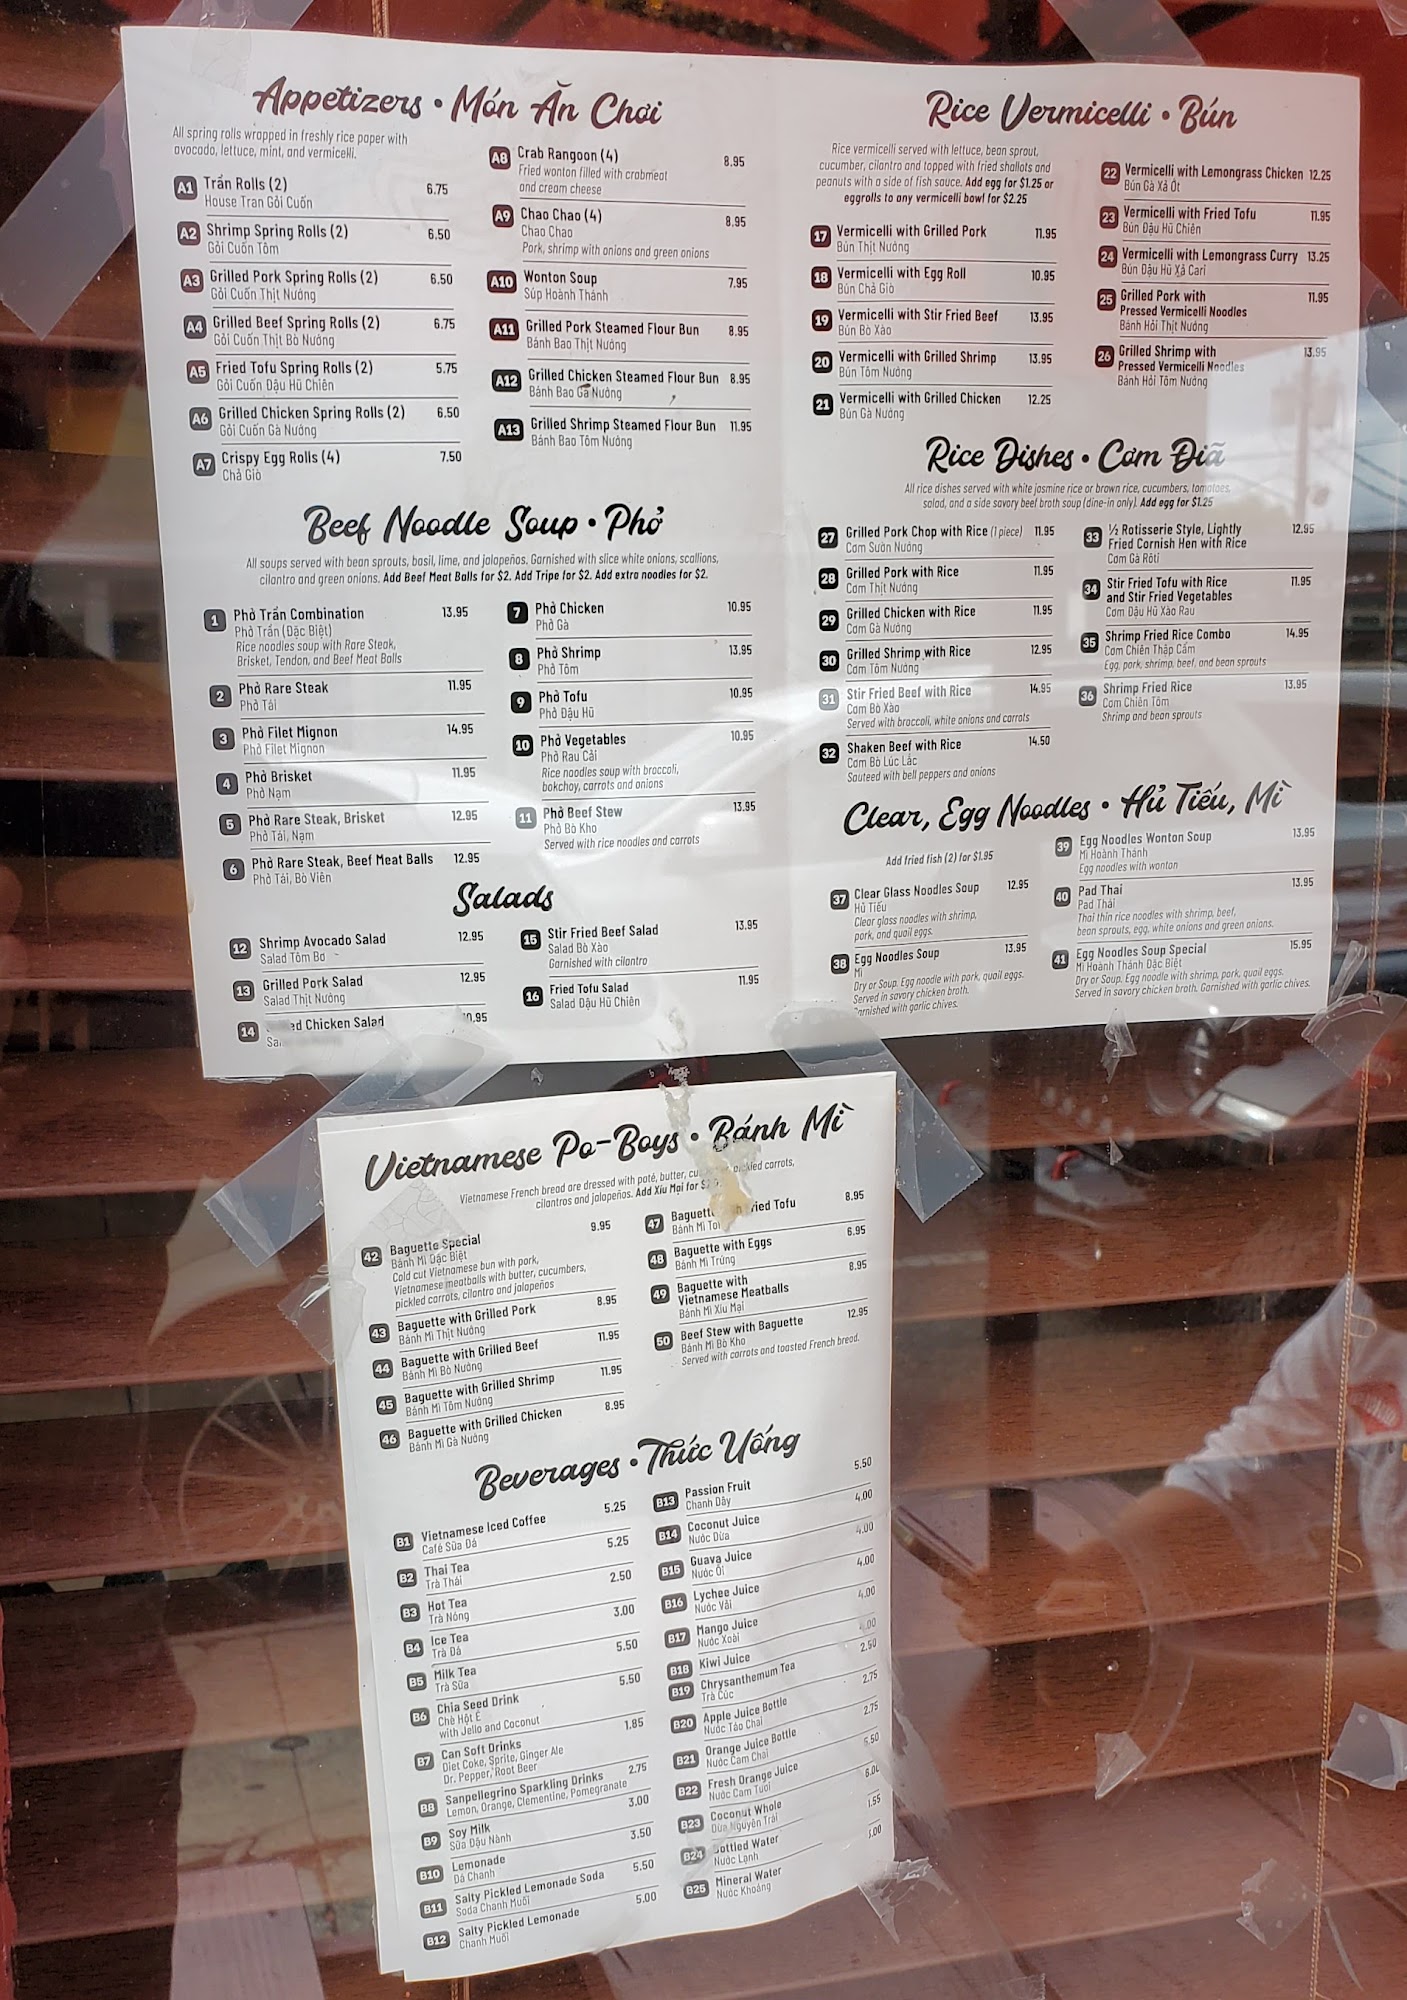 Appetizers • Món Ăn Chơi
All spring rolls wrapped in freshly rice paper with
avocado, lettuce, mint, and vermicelli.
A1 Trấn Rolls (2) 6.75
House Tran Gỏi Cuốn
A2 Shrimp Spring Rolls (2) 6.50
Gỏi Cuốn Tôm
A3 Grilled Pork Spring Rolls (2) 6.50
Gỏi Cuốn Thịt Nướng
A4 Grilled Beef Spring Rolls (2) 6.75
Gỏi Cuốn Thịt Bò Nướng
A5 Fried Tofu Spring Rolls (2) 5.75
Gỏi Cuốn Đậu Hũ Chiên
A6 Grilled Chicken Spring Rolls (2) 6.50
Gỏi Cuốn Gà Nướng
A7 Crispy Egg Rolls (4) 7.50
Chả Giò
A8 Crab Rangoon (4) 8.95
Fried wonton filled with crabmeat
and cream cheese
A9 Chao Chao (4) 8.95
Chao Chao
Pork, shrimp with onions and green onions
A10 Wonton Soup 7.95
Súp Hoành Thánh
A11 Grilled Pork Steamed Flour Bun 8.95
Bánh Bao Thịt Nướng
A12 Grilled Chicken Steamed Flour Bun 8.95
Bánh Bao Gà Nướng
A13 Grilled Shrimp Steamed Flour Bun 11.95
Bánh Bao Tôm Nướng
Beef Noodle Soup • Phở
All soups served with bean sprouts, basil, lime, and jalapeños. Garnished with slice white onions, scallions,
cilantro and green onions. Add Beef Meat Balls for $2. Add Tripe for $2. Add extra noodles for $2.
1 Phở Trấn Combination 13.95
Phở Trấn (Đặc Biệt)
Rice noodles soup with Rare Steak,
Brisket, Tendon, and Beef Meat Balls
2 Phở Rare Steak 11.95
Phở Tái
3 Phở Filet Mignon 14.95
Phở Filet Mignon
4 Phở Brisket 11.95
Phở Nạm
5 Phở Rare Steak, Brisket 12.95
Phở Tái, Nạm
6 Phở Rare Steak, Beef Meat Balls 12.95
Phở Tái, Bò Viên
7 Phở Chicken 10.95
Phở Gà
8 Phở Shrimp 13.95
Phở Tôm
9 Phở Tofu 10.95
Phở Đậu Hũ
10 Phở Vegetables 10.95
Phở Rau Cải
Rice noodles soup with broccoli,
bokchoy, carrots and onions
11 Phở Beef Stew 13.95
Phở Bò Kho
Served with rice noodles and carrots
Salads
12 Shrimp Avocado Salad 12.95
Salad Tôm Bơ
13 Grilled Pork Salad 12.95
Salad Thịt Nướng
14 Chicken Salad
15 Stir Fried Beef Salad 13.95
Salad Bò Xào
Garnished with cilantro
16 Fried Tofu Salad 11.95
Salad Đậu Hũ Chiên
Rice Vermicelli • Bún
Rice vermicelli served with lettuce, bean sprout,
cucumber, cilantro and topped with fried shallots and
peanuts with a side of fish sauce. Add egg for $1.25 or
eggrolls to any vermicelli bowl for $2.25
17 Vermicelli with Grilled Pork 11.95
Bún Thịt Nướng
18 Vermicelli with Egg Roll 10.95
Bún Chả Giò
19 Vermicelli with Stir Fried Beef 13.95
Bún Bò Xào
20 Vermicelli with Grilled Shrimp 13.95
Bún Tôm Nướng
21 Vermicelli with Grilled Chicken 12.25
Bún Gà Nướng
22 Vermicelli with Lemongrass Chicken 12.25
Bún Gà Xả Ớt
23 Vermicelli with Fried Tofu 11.95
Bún Đậu Hũ Chiên
24 Vermicelli with Lemongrass Curry 13.25
Bún Đậu Hũ Xả Cari
25 Grilled Pork with 11.95
Pressed Vermicelli Noodles
Bánh Hỏi Thịt Nướng
26 Grilled Shrimp with 13.95
Pressed Vermicelli Noodles
Bánh Hỏi Tôm Nướng
Rice Dishes • Cơm Điã
All rice dishes served with white jasmine rice or brown rice, cucumbers, tomatoes,
salad, and a side savory beef broth soup (dine-in only). Add egg for $1.25
27 Grilled Pork Chop with Rice (1 piece) 11.95
Cơm Sườn Nướng
28 Grilled Pork with Rice 11.95
Cơm Thịt Nướng
29 Grilled Chicken with Rice 11.95
Cơm Gà Nướng
30 Grilled Shrimp with Rice 12.95
Cơm Tôm Nướng
31 Stir Fried Beef with Rice 14.95
Cơm Bò Xào
Served with broccoli, white onions and carrots
32 Shaken Beef with Rice 14.50
Cơm Bò Lúc Lắc
Sauteed with bell peppers and onions
33 ½ Rotisserie Style, Lightly 12.95
Fried Cornish Hen with Rice
Cơm Gà Rôti
34 Stir Fried Tofu with Rice 11.95
and Stir Fried Vegetables
Cơm Đậu Hũ Xào Rau
35 Shrimp Fried Rice Combo 14.95
Cơm Chiên Thập Cẩm
Egg, pork, shrimp, beef, and bean sprouts
36 Shrimp Fried Rice 13.95
Cơm Chiên Tôm
Shrimp and bean sprouts
Clear, Egg Noodles • Hủ Tiếu, Mì
Add fried fish (2) for $1.95
37 Clear Glass Noodles Soup 12.95
Hủ Tiếu
Clear glass noodles with shrimp,
pork, and quail eggs.
38 Egg Noodles Soup 13.95
Mì
Dry or Soup. Egg noodle with pork, quail eggs.
Served in savory chicken broth.
Garnished with garlic chives.
39 Egg Noodles Wonton Soup 13.95
Mì Hoành Thánh
Egg noodles with wonton
40 Pad Thai 13.95
Pad Thái
Thai thin rice noodles with shrimp, beef,
bean sprouts, egg, white onions and green onions.
41 Egg Noodles Soup Special 15.95
Mì Hoành Thánh Đặc Biệt
Dry or Soup. Egg noodle with shrimp, pork, quail eggs.
Served in savory chicken broth. Garnished with garlic chives.
Vietnamese Po-Boys • Bánh Mì
Vietnamese French bread are dressed with paté, butter, pickled carrots,
cilantros and jalapeños. Add Xíu Mại for
42 Baguette Special 9.95
Bánh Mì Đặc Biệt
Cold cut Vietnamese bun with pork,
Vietnamese meatballs with butter, cucumbers,
pickled carrots, cilantro and jalapeños
43 Baguette with Grilled Pork 8.95
Bánh Mì Thịt Nướng
44 Baguette with Grilled Beef 11.95
Bánh Mì Bò Nướng
45 Baguette with Grilled Shrimp 11.95
Bánh Mì Tôm Nướng
46 Baguette with Grilled Chicken 8.95
Bánh Mì Gà Nướng
47 Fried Tofu 8.95
Bánh Mì
48 Baguette with Eggs 6.95
Bánh Mì Trứng
49 Baguette with 8.95
Vietnamese Meatballs
Bánh Mì Xíu Mại
50 Beef Stew with Baguette 12.95
Bánh Mì Bò Kho
Served with carrots and toasted French bread.
Beverages • Thức Uống
B1 Vietnamese Iced Coffee 5.25
Café Sữa Đá
B2 Thai Tea 5.25
Trà Thái
B3 Hot Tea 2.50
Trà Nóng
B4 Ice Tea 3.00
Trà Đá
B5 Milk Tea 5.50
Trà Sữa
B6 Chia Seed Drink 5.50
Chè Hột É
with Jello and Coconut
B7 Can Soft Drinks 1.85
Diet Coke, Sprite, Ginger Ale
Dr. Pepper, Root Beer
B8 Sanpellegrino Sparkling Drinks 2.75
Lemon, Orange, Clementine, Pomegranate
B9 Soy Milk 3.00
Sữa Đậu Nành
B10 Lemonade 3.50
Đá Chanh
B11 Salty Pickled Lemonade Soda 5.50
Soda Chanh Muối
B12 Salty Pickled Lemonade 5.00
Chanh Muối
B13 Passion Fruit 5.50
Chanh Dây
B14 Coconut Juice 4.00
Nước Dừa
B15 Guava Juice 4.00
Nước Ổi
B16 Lychee Juice 4.00
Nước Vải
B17 Mango Juice 4.00
Nước Xoài
B18 Kiwi Juice
B19 Chrysanthemum Tea 2.50
Trà Cúc
B20 Apple Juice Bottle 2.75
Nước Táo Chai
B21 Orange Juice Bottle 2.75
Nước Cam Chai
B22 Fresh Orange Juice 5.50
Nước Cam Tươi
B23 Coconut Whole
Dừa Nguyên Trái
B24 Bottled Water
Nước Lạnh
B25 Mineral Water
Nước Khoáng